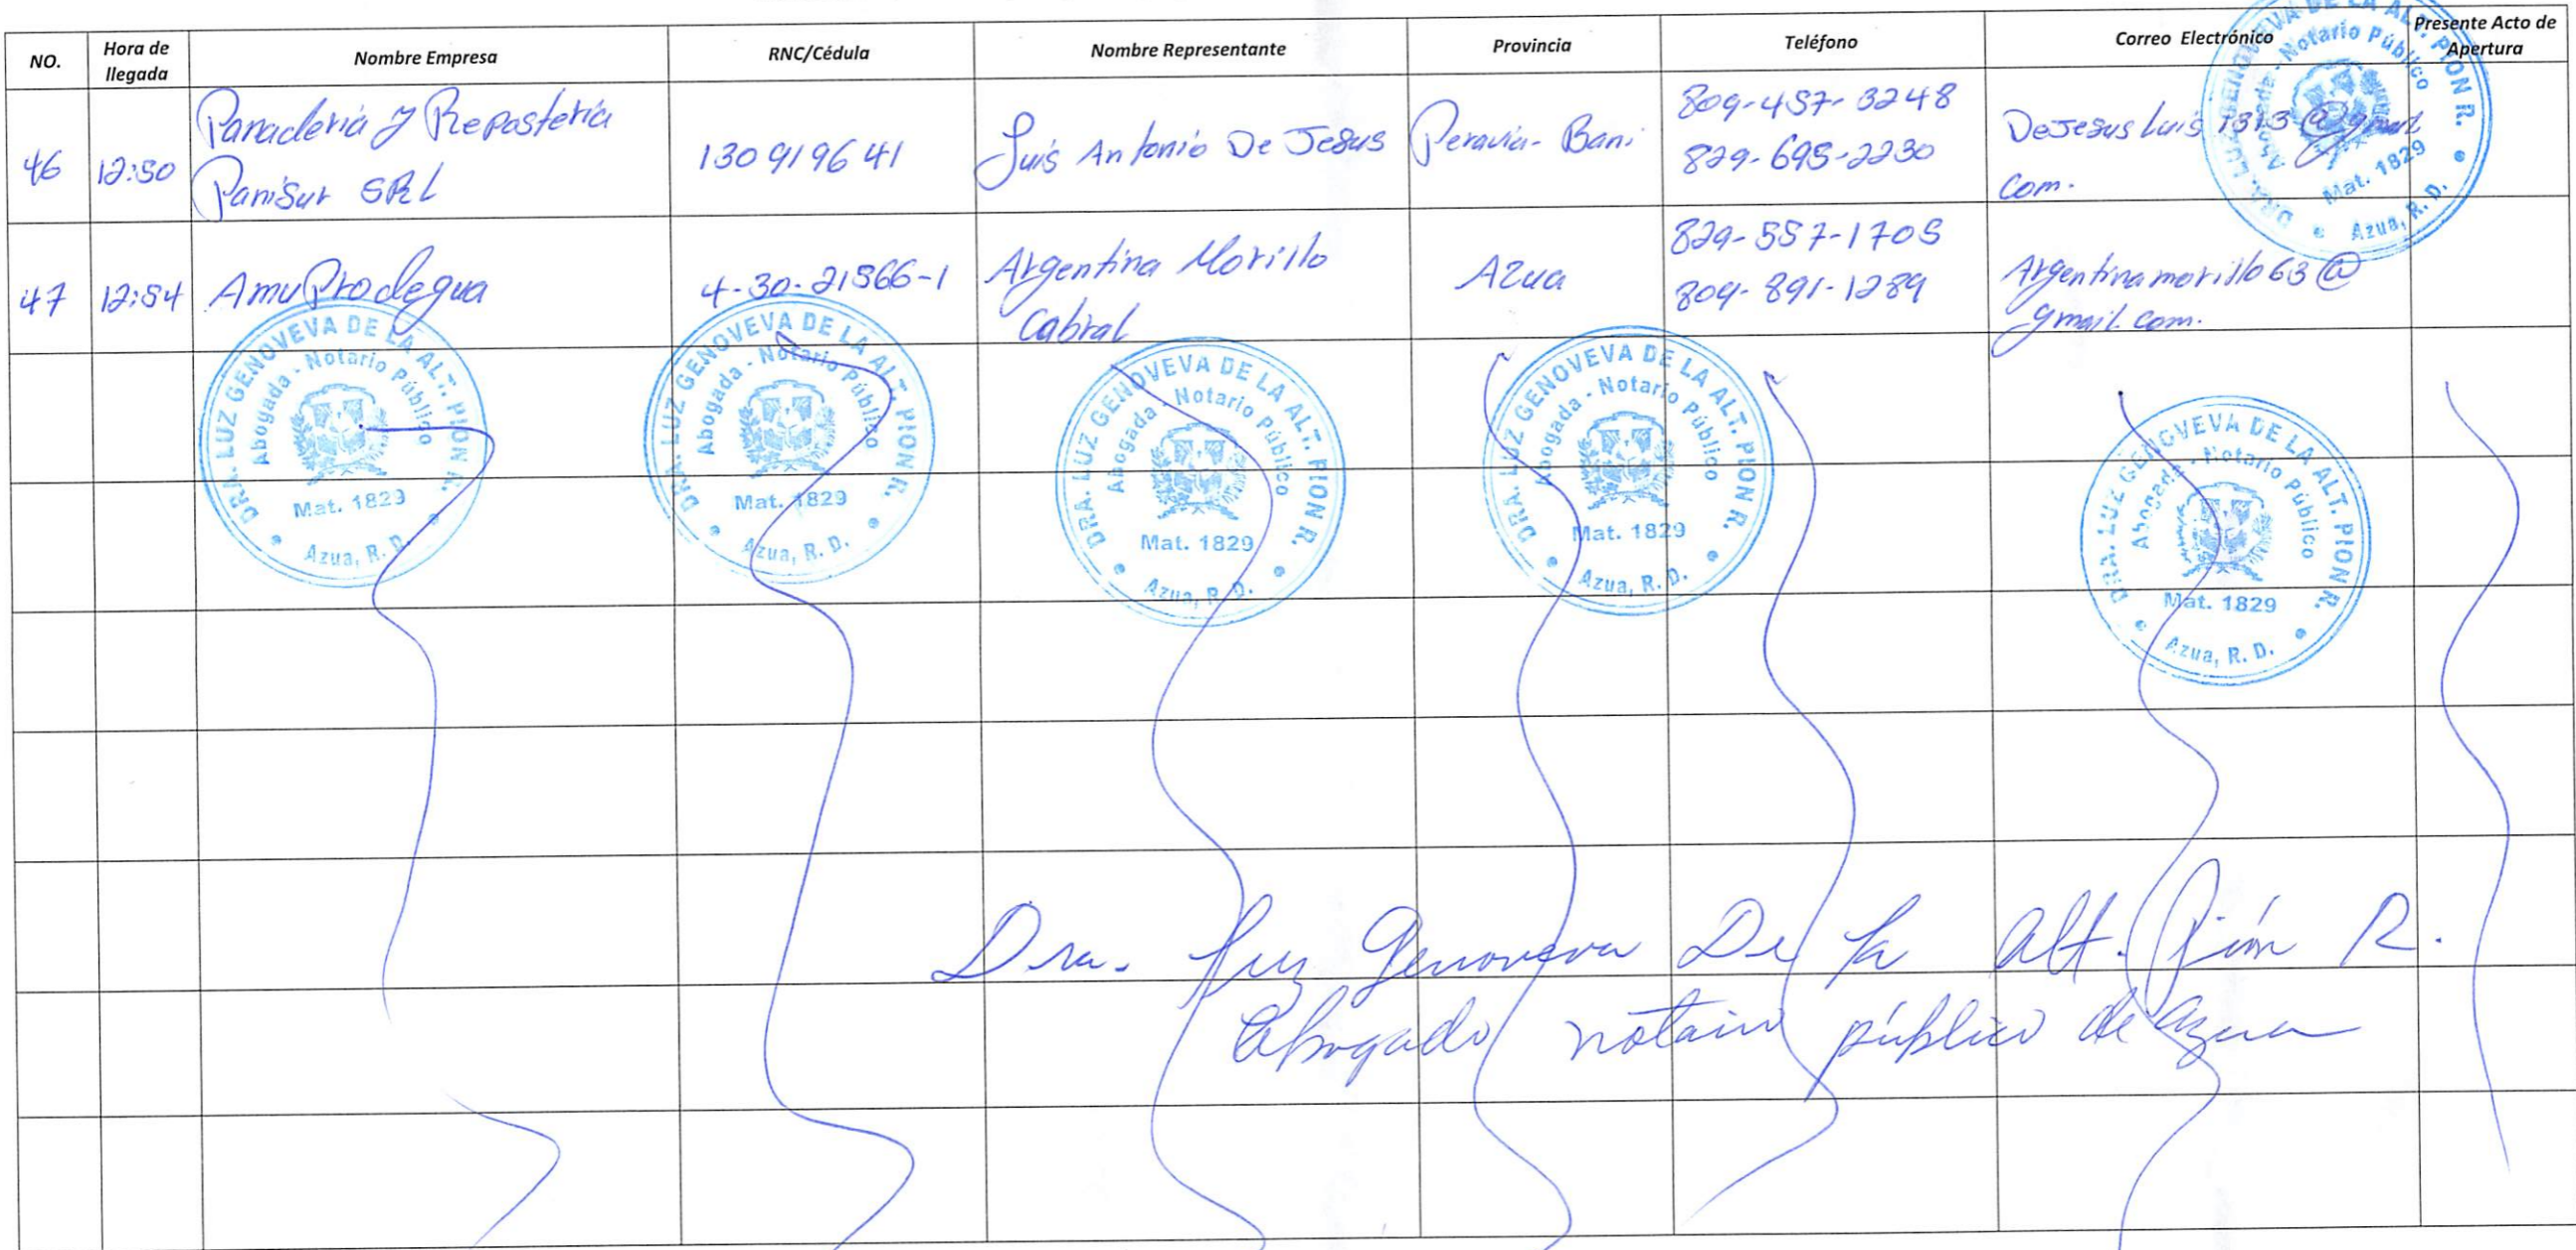 NO.
Hora de
llegada
Nombre Empresa
RNC/Cédula
Nombre Representante
Provincia
Teléfono
Correo Electrónico
Presente Acto de
Apertura
46
12:50
Panaderia y Reposteria
PaniSur SRL
130919641
Luis Antonio De Jesus
Peravia- Bani
809-457-3248
829-695-2230
DeJesusLuis1313@gmail
Com.
47
12:54
AmuProdegua
4-30-21566-1
Argentina Morillo
Cabral
Azua
829-557-1705
809-891-1289
Argentinamorillo63@
gmail.com.
DRA. LUZ GENOVEVA DE LA ALT. PION R.
Abogada - Notario Público
Mat. 1829
Azua, R. D.
DRA. LUZ GENOVEVA DE LA ALT. PION R.
Abogada - Notario Público
Mat. 1829
Azua, R. D.
DRA. LUZ GENOVEVA DE LA ALT. PION R.
Abogada - Notario Público
Mat. 1829
Azua, R. D.
DRA. LUZ GENOVEVA DE LA ALT. PION R.
Abogada - Notario Público
Mat. 1829
Azua, R. D.
DRA. LUZ GENOVEVA DE LA ALT. PION R.
Abogada - Notario Público
Mat. 1829
Azua, R. D.
DRA. LUZ GENOVEVA DE LA ALT. PION R.
Abogada - Notario Público
Mat. 1829
Azua, R. D.
Dra. Luz Genoveva De la Alt. Pión R.
Abogado notario público de Azua